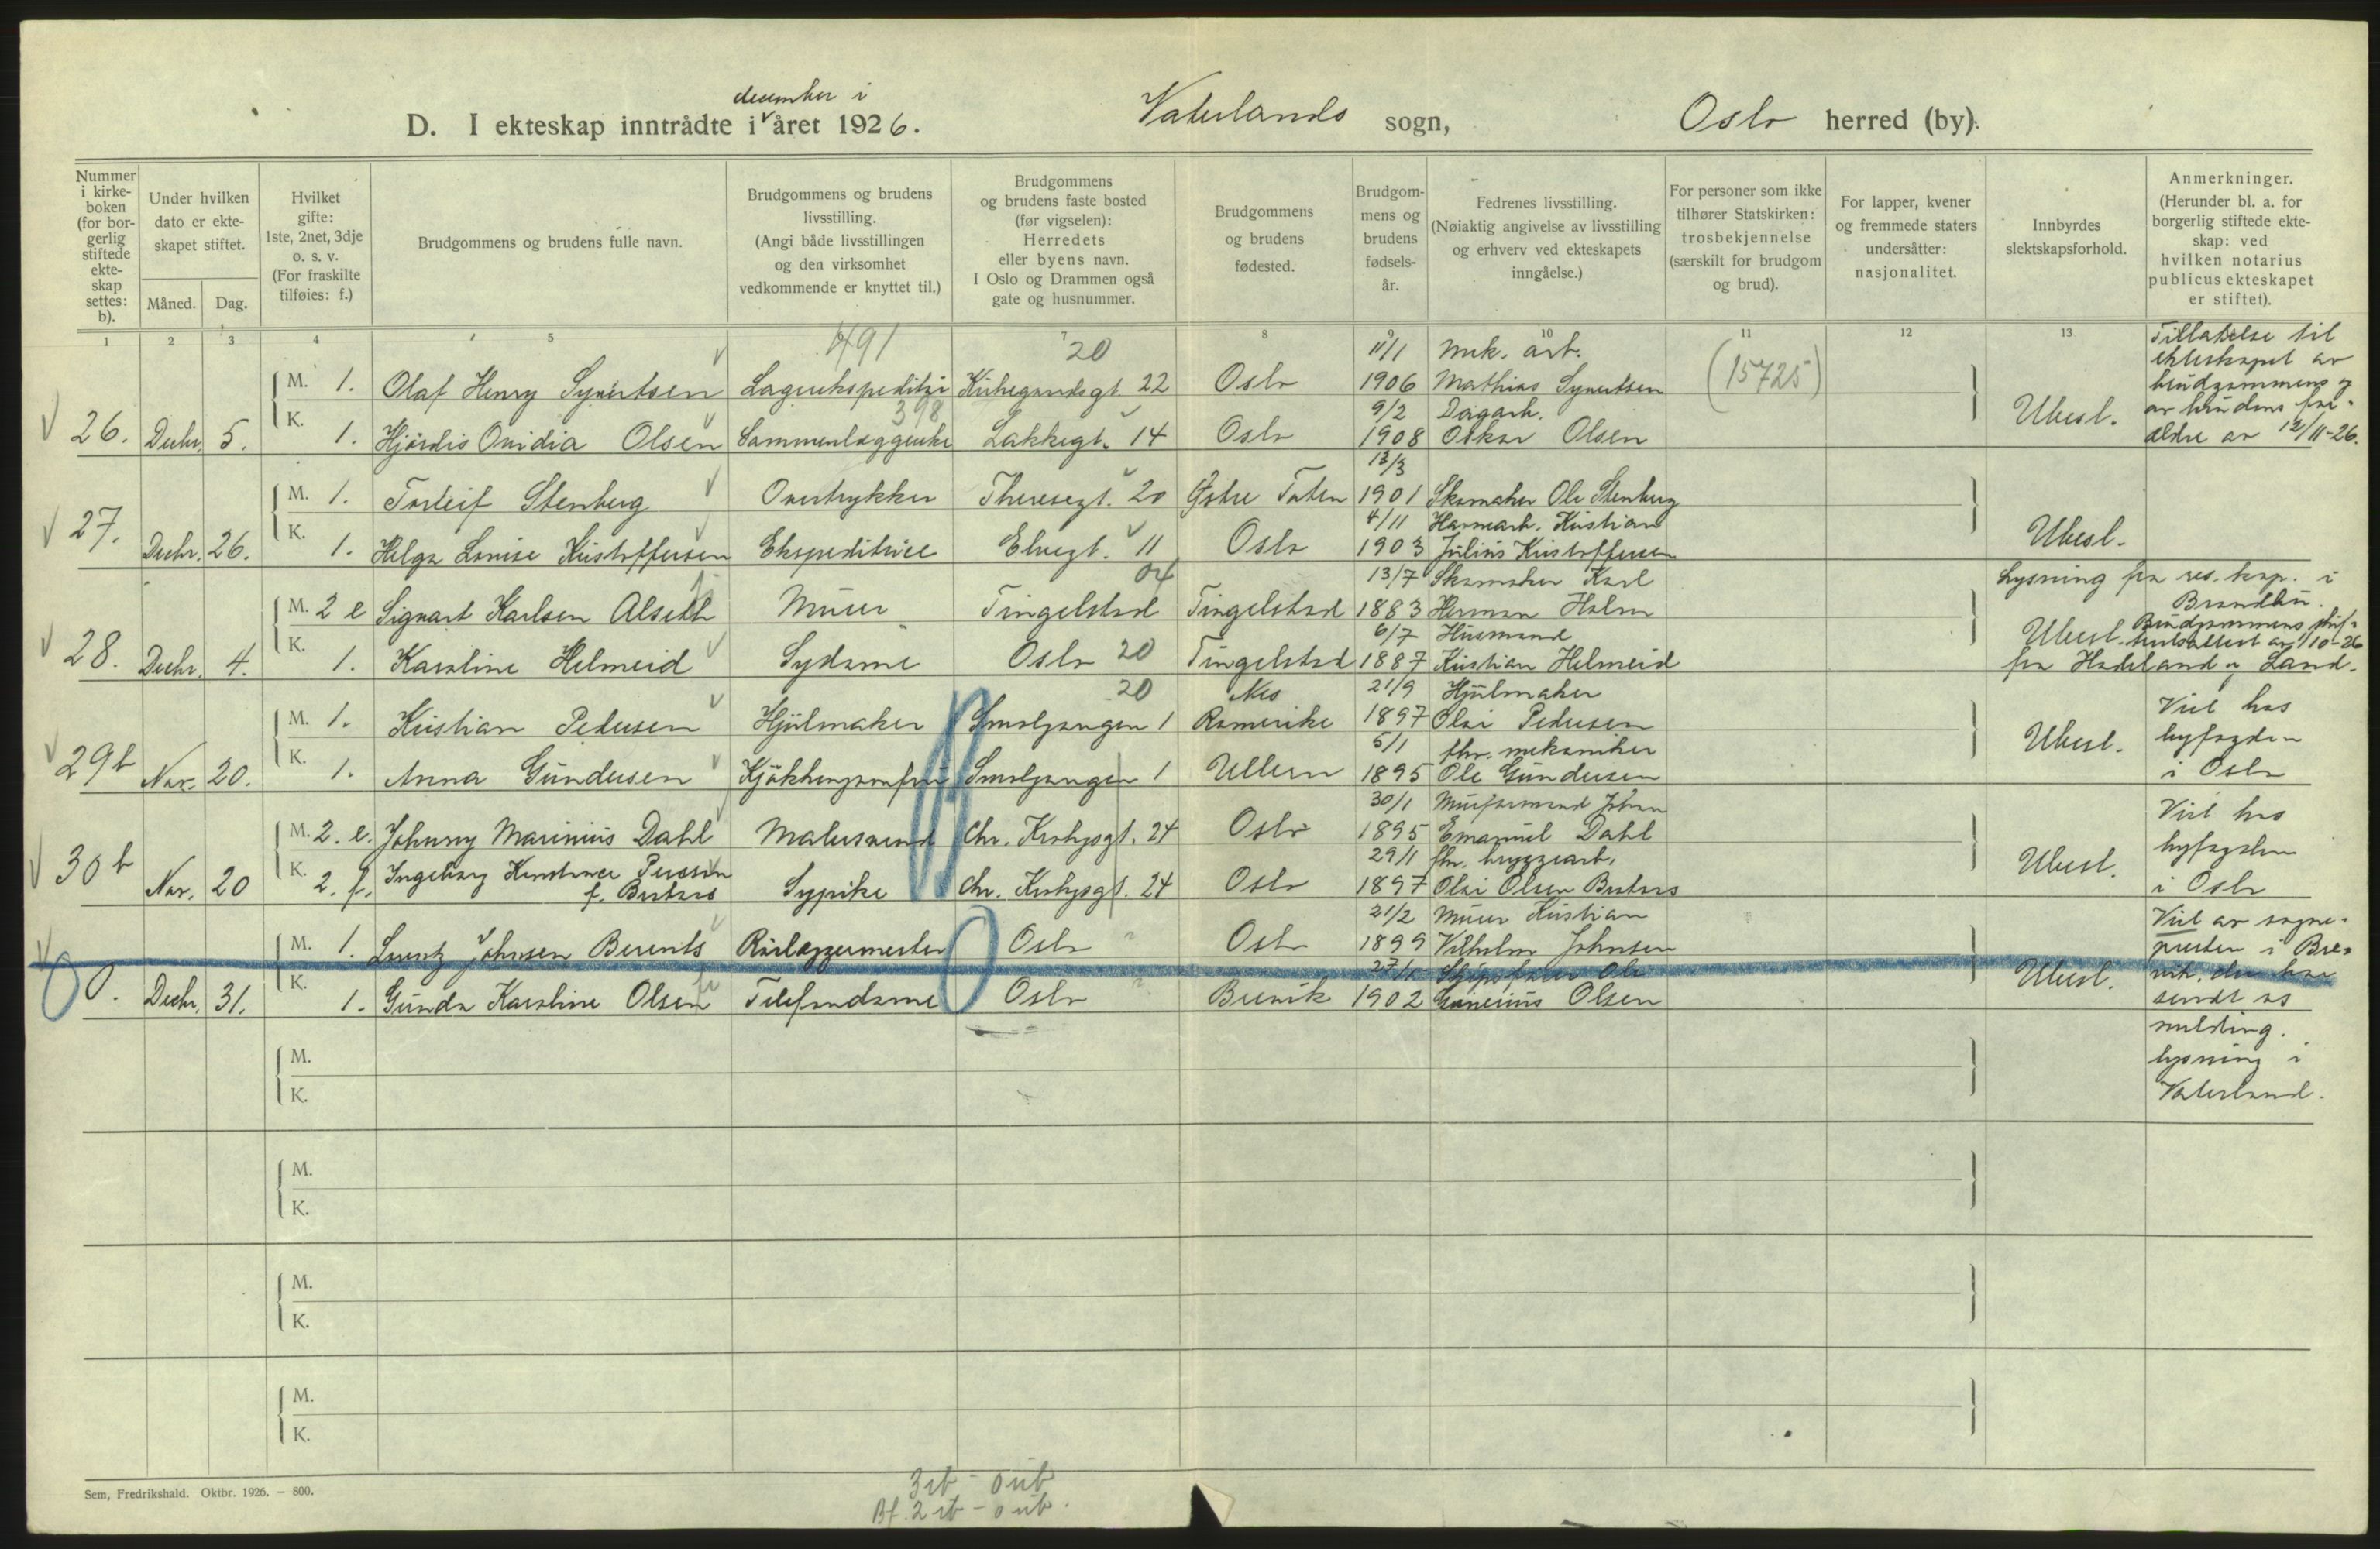 december i
D. I ekteskap inntrådte i året 1926. Vaterlands sogn, Oslo herred (by).
Nummer i kirkeboken (for borgerlig stiftede ekteskap settes: b).
Under hvilken dato er ekteskapet stiftet.
Måned. Dag.
Hvilket gifte: 1ste, 2net, 3dje o. s. v. (For fraskilte tilføies: f.)
Brudgommens og brudens fulle navn.
Brudgommens og brudens livsstilling. (Angi både livsstillingen og den virksomhet vedkommende er knyttet til.)
Brudgommens og brudens faste bosted (før vigselen): Herredets eller byens navn. I Oslo og Drammen også gate og husnummer.
Brudgommens og brudens fødested.
Brudgommens og brudens fødselsår.
Fedrenes livsstilling. (Nøiaktig angivelse av livsstilling og erhverv ved ekteskapets inngåelse.)
For personer som ikke tilhører Statskirken: trosbekjennelse (særskilt for brudgom og brud).
For lapper, kvener og fremmede staters undersåtter: nasjonalitet.
Innbyrdes slektskapsforhold.
Anmerkninger. (Herunder bl. a. for borgerlig stiftede ekteskap: ved hvilken notarius publicus ekteskapet er stiftet).
1 2 3 4 5 7 8 9 10 11 12 13
491 20 11/1 Mek. arb. (15725)
M. 1. Olaf Henry Syvertsen Lagerekspeditør Kirkegaardsgt. 22 Oslo 1906 Mathias Syvertsen
398 9/2 Dagarb.
26. Decbr. 5. K. 1. Hjørdis Ovidia Olsen Sammenlæggerske Lakkegt. 14 Oslo 1908 Oskar Olsen Ubesl.
Tillatelse til
ekteskapet av
brudgommens og
av brudens for-
ældre av 12/11-26.
13/3
M. 1. Torleif Stenberg Overtrykker Theresegt. 20 Østre Toten 1901 Skomaker Ole Stenberg
4/11 Havnearb. Kristian
27. Decbr. 26. K. 1. Helga Lovise Kristoffersen Ekspeditrice Elvegt. 11 Oslo 1903 Julius Kristoffersen Ubesl.
04 13/7 Skomaker Karl
M. 2 e Sigvart Karlsen Alseth Murer Tingelstad Tingelstad 1883 Herman Holm
6/7 Husmand
28. Decbr. 4. K. 1. Karoline Helmeid Sydame Oslo 20 Tingelstad 1887 Kristian Helmeid Ubesl.
Lysning fra res. kap. i
Brandbu.
Brudgommens skif-
teattest av 1/10-26
fra Hadeland og Land.
20 Nes 21/9 Hjulmaker
M. 1. Kristian Pedersen Hjulmaker Smalgangen 1 Romerike 1897 Olai Pedersen
5/1 fhv. mekaniker
29b Nov. 20. K. 1. Anna Gundersen Kjøkkenjomfru Smalgangen 1 Ullern 1895 Ole Gundersen Ubesl.
Viet hos
byfogden
i Oslo
30/1 Murformand Johan
M. 2. e. Johnny Marinius Dahl Malersvend Chr. Krohgsgt. 24 Oslo 1895 Emanuel Dahl
29/1 fhv. bryggearb.
30b Nov. 20 K. 2. f. Ingeborg Konstance Persson Sypike Chr. Krohgsgt. 24 Oslo 1897 Olai Olsen Ubesl.
Viet hos
byfogden
i Oslo
21/2 Murer Kristian
M. 1. Lorentz Johnsen Berents Rørlæggermester Oslo Oslo 1899 Vilhelm Johnsen
Skipsfører Ole
0. Decbr. 31. K. 1. Gunda Karoline Olsen Telefondame Oslo Brevik 1902 Olsen Ubesl.
Viet av sogne-
presten i Bre-
vik, der har
sendt os
melding.
Lysning i
Vaterland.
M.
K.
M.
K.
M.
K.
M.
K.
Sem, Fredrikshald. Oktbr. 1926. – 800.
3 rb - 0 ub
Bf. 2 rb - 0 ub.